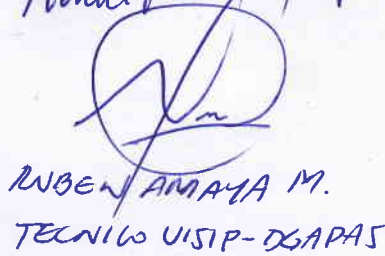 RUBEN AMAYA M.
TECNICO VISIP-DGAPAS